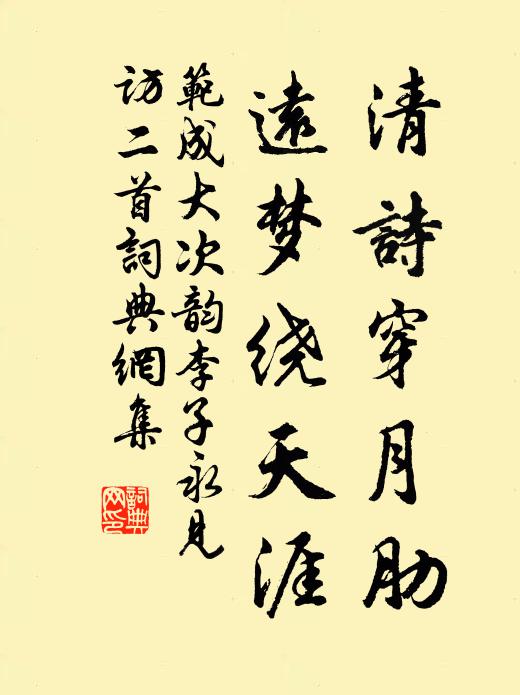 清詩穿月肋
遠梦绕天涯
範成大次韵李子永見
訪二首詞典網集
詞典网印